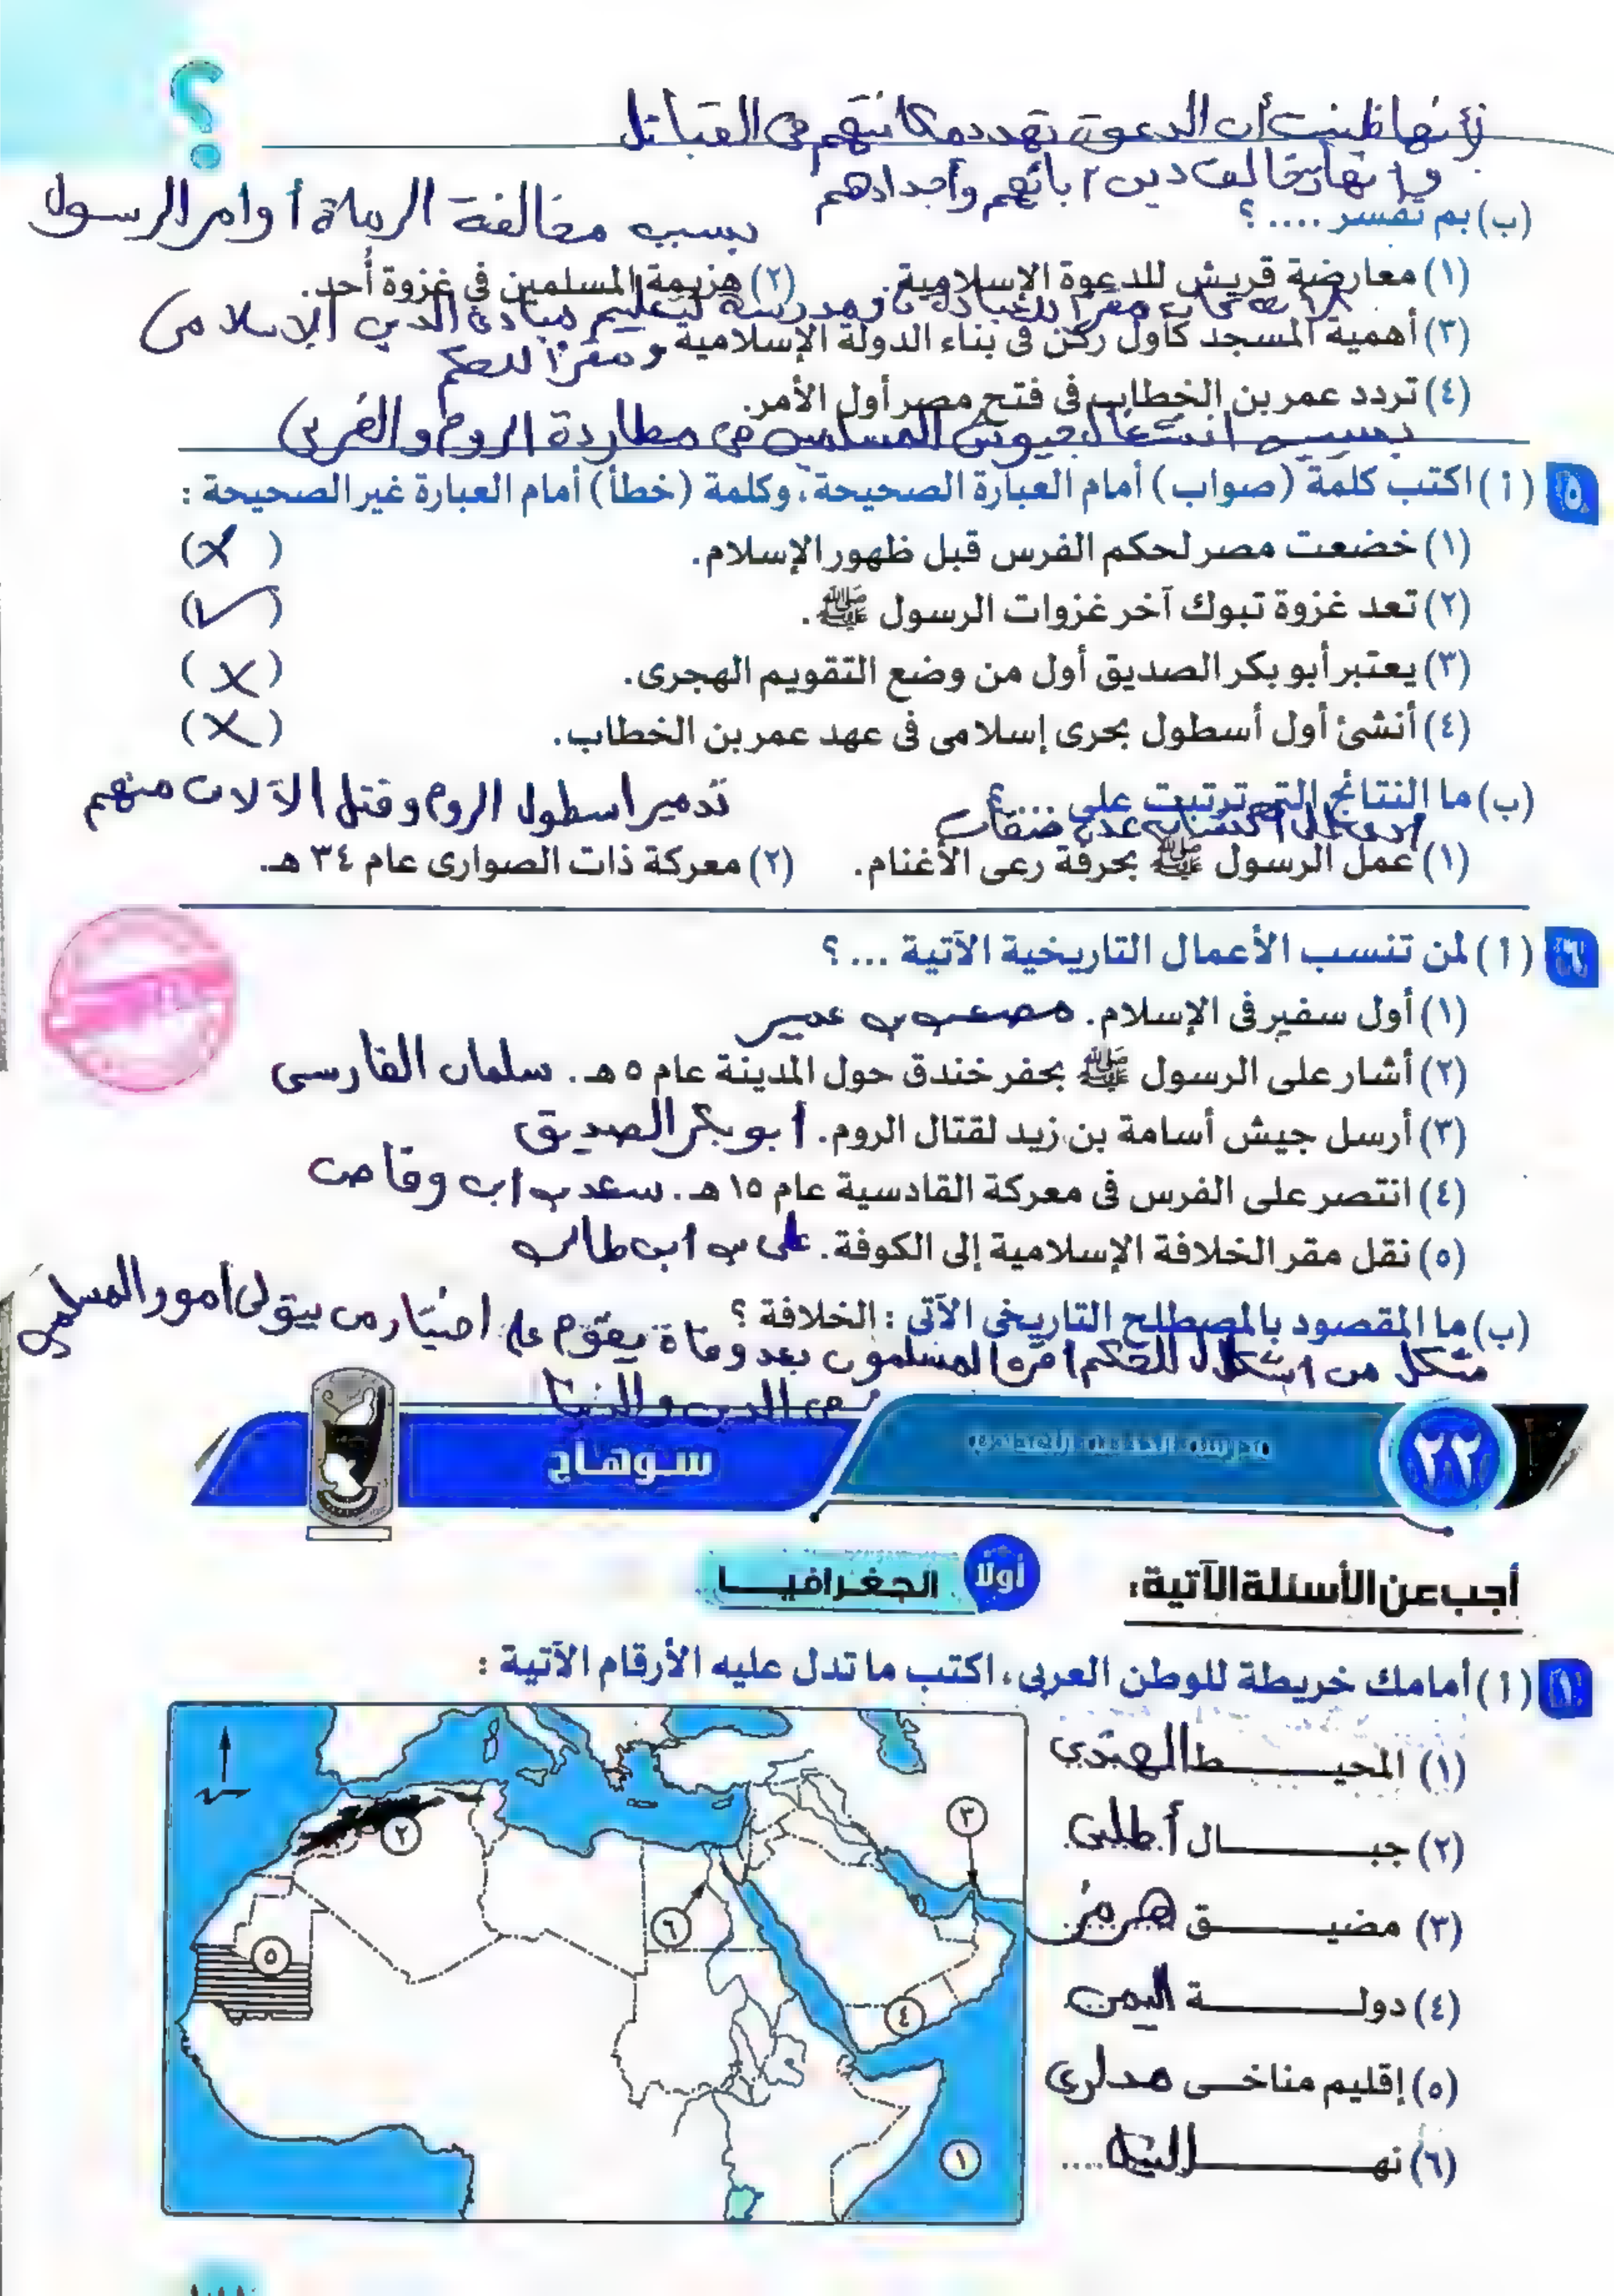 ؟
لأنها ظنت أن الدعوة تهدد مكانتهم فى القبائل
وأنها تخالف دين آبائهم وأجدادهم
(ب) بم تفسر .... ؟
بسبب مخالفة الرماة أوامر الرسول
(١) معارضة قريش للدعوة الإسلامية. (٢) هزيمة المسلمين فى غزوة أُحد.
مقرًا للعبادة ومدرسة لتعليم مبادئ الدين الإسلامى
(٣) أهمية المسجد كأول ركن فى بناء الدولة الإسلامية
ومقرًا للحكم
(٤) تردد عمر بن الخطاب فى فتح مصر أول الأمر.
بسبب انشغال جيوش المسلمين فى مطاردة الروم والفرس
٥ (أ) اكتب كلمة (صواب) أمام العبارة الصحيحة، وكلمة (خطأ) أمام العبارة غير الصحيحة :
(١) خضعت مصر لحكم الفرس قبل ظهور الإسلام. (✗)
(٢) تعد غزوة تبوك آخر غزوات الرسول ﷺ. (✓)
(٣) يعتبر أبو بكر الصديق أول من وضع التقويم الهجرى. (✗)
(٤) أنشئ أول أسطول بحرى إسلامى فى عهد عمر بن الخطاب. (✗)
(ب) ما النتائج التى ترتبت على ....؟ تدمير اسطول الروم وقتل الآلاف منهم
(١) عمل الرسول ﷺ بحرفة رعى الأغنام. (٢) معركة ذات الصوارى عام ٣٤ هـ.
٦ (أ) لمن تنسب الأعمال التاريخية الآتية ... ؟
(١) أول سفير فى الإسلام. مصعب بن عمير
(٢) أشار على الرسول ﷺ بحفر خندق حول المدينة عام ٥ هـ. سلمان الفارسى
(٣) أرسل جيش أسامة بن زيد لقتال الروم. أبو بكر الصديق
(٤) انتصر على الفرس فى معركة القادسية عام ١٥ هـ. سعد بن اب وقاص
(٥) نقل مقر الخلافة الإسلامية إلى الكوفة. على بن ابى طالب
(ب) ما المقصود بالمصطلح التاريخى الآتى : الخلافة ؟
شكل من اشكال للحكم المسلمون بعد وفاة يقوم على اختيار من يتولى أمور المسلمين
فى الدين والدنيا
٢٢
سوهاج
أجب عن الأسئلة الآتية:
أولًا الجغرافيا
١ (أ) أمامك خريطة للوطن العربى، اكتب ما تدل عليه الأرقام الآتية :
(١) المحيط الهندي
(٢) جبال أطلس
(٣) مضيق هرمز
(٤) دولة اليمن
(٥) إقليم مناخى مدارى
(٦) نهر النيل....
٢
٣
٦
٥
٤
١